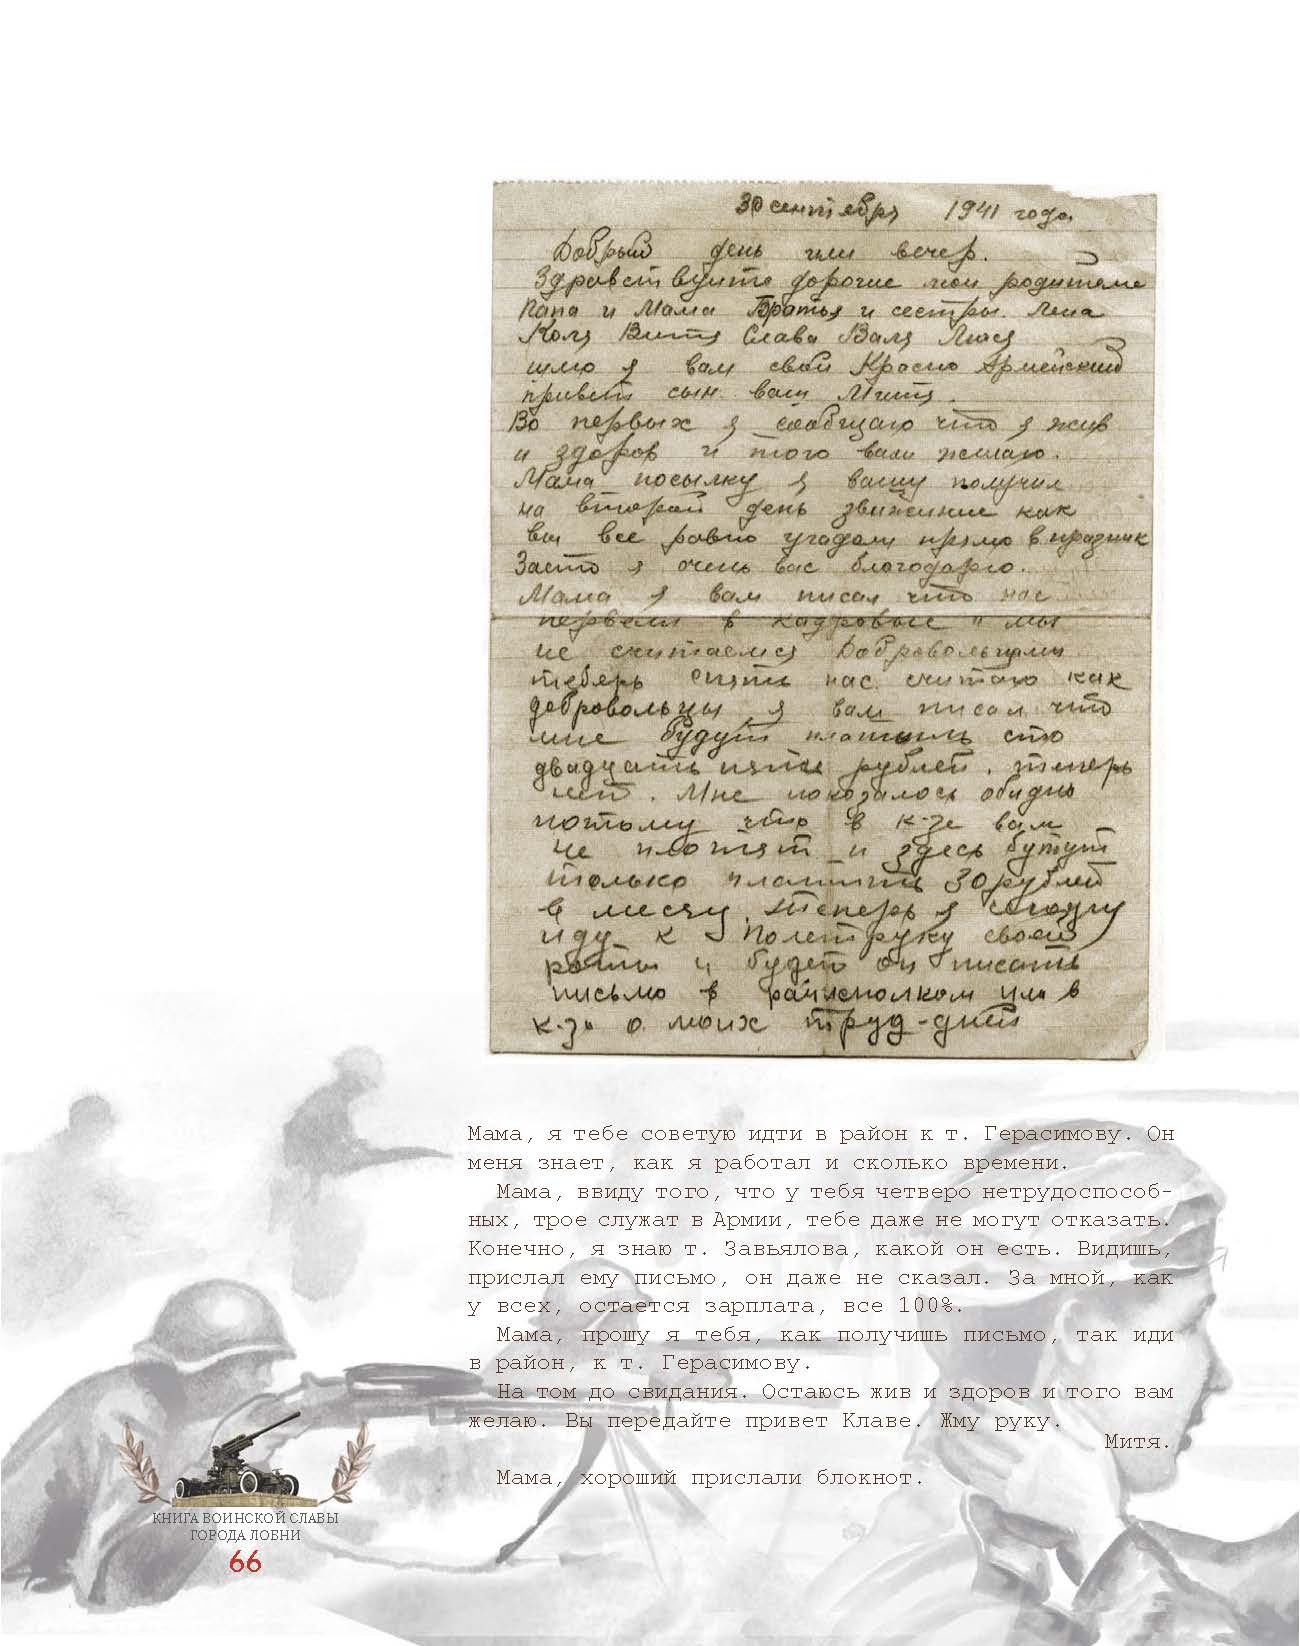 30 сентября 1941 года.
Добрый день или вечер.
Здравствуите дорогие мои родители
Папа и Мама Братья и сестры. Лена
Коля Витя Слава Валя Люся
шлю я вам свой Красно Армейский
привет сын ваш Митя.
Во первых я сообщаю что я жив
и здоров и того вам желаю.
Мама посылку я вашу получил
на второй день движение как
вы все равно угадали прямо в празник
Засто я очень вас благодарю.
Мама я вам писал что нас
первели в кадровые и мы
не считаемся Добровольцами
теберь опять нас считаю как
добровольцы я вам писал что
мне будут платить сто
двадцать пять рублей. теперь
нет. Мне показалось обидно
потому что в к-зе вам
не плотят и здесь бутут
только платить 30 рублей
в месяц. Теперь я сегодня
иду к Политруку своей
роты и будет он писать
письмо в райисполком или в
к-з о моих труд-дней
Мама, я тебе советую идти в район к т. Герасимову. Он
меня знает, как я работал и сколько времени.
Мама, ввиду того, что у тебя четверо нетрудоспособ-
ных, трое служат в Армии, тебе даже не могут отказать.
Конечно, я знаю т. Завьялова, какой он есть. Видишь,
прислал ему письмо, он даже не сказал. За мной, как
у всех, остается зарплата, все 100%.
Мама, прошу я тебя, как получишь письмо, так иди
в район, к т. Герасимову.
На том до свидания. Остаюсь жив и здоров и того вам
желаю. Вы передайте привет Клаве. Жму руку.
Митя.
Мама, хороший прислали блокнот.
КНИГА ВОИНСКОЙ СЛАВЫ
ГОРОДА ЛОБНИ
66